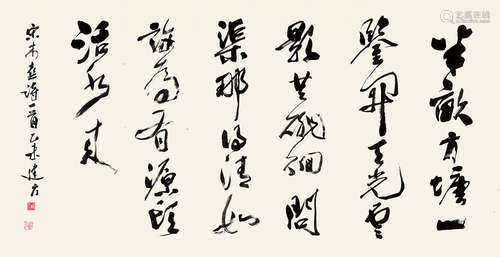 半畝方塘一
鑒開天光雲
影共徘徊問
渠那得清如
許為有源頭
活水來
宋朱熹詩一首乙未